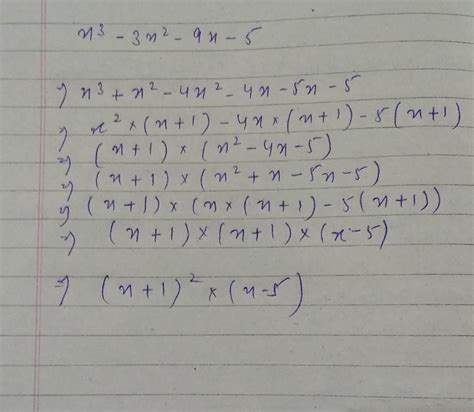 x³ - 3x² - 9x - 5
⇒ x³ + x² - 4x² - 4x - 5x - 5
⇒ x² × (x + 1) - 4x × (x + 1) - 5 (x + 1)
⇒ (x + 1) × (x² - 4x - 5)
⇒ (x + 1) × (x² + x - 5x - 5)
⇒ (x + 1) × (x × (x + 1) - 5 (x + 1))
⇒ (x + 1) × (x + 1) × (x - 5)
⇒ (x + 1)² × (x - 5)